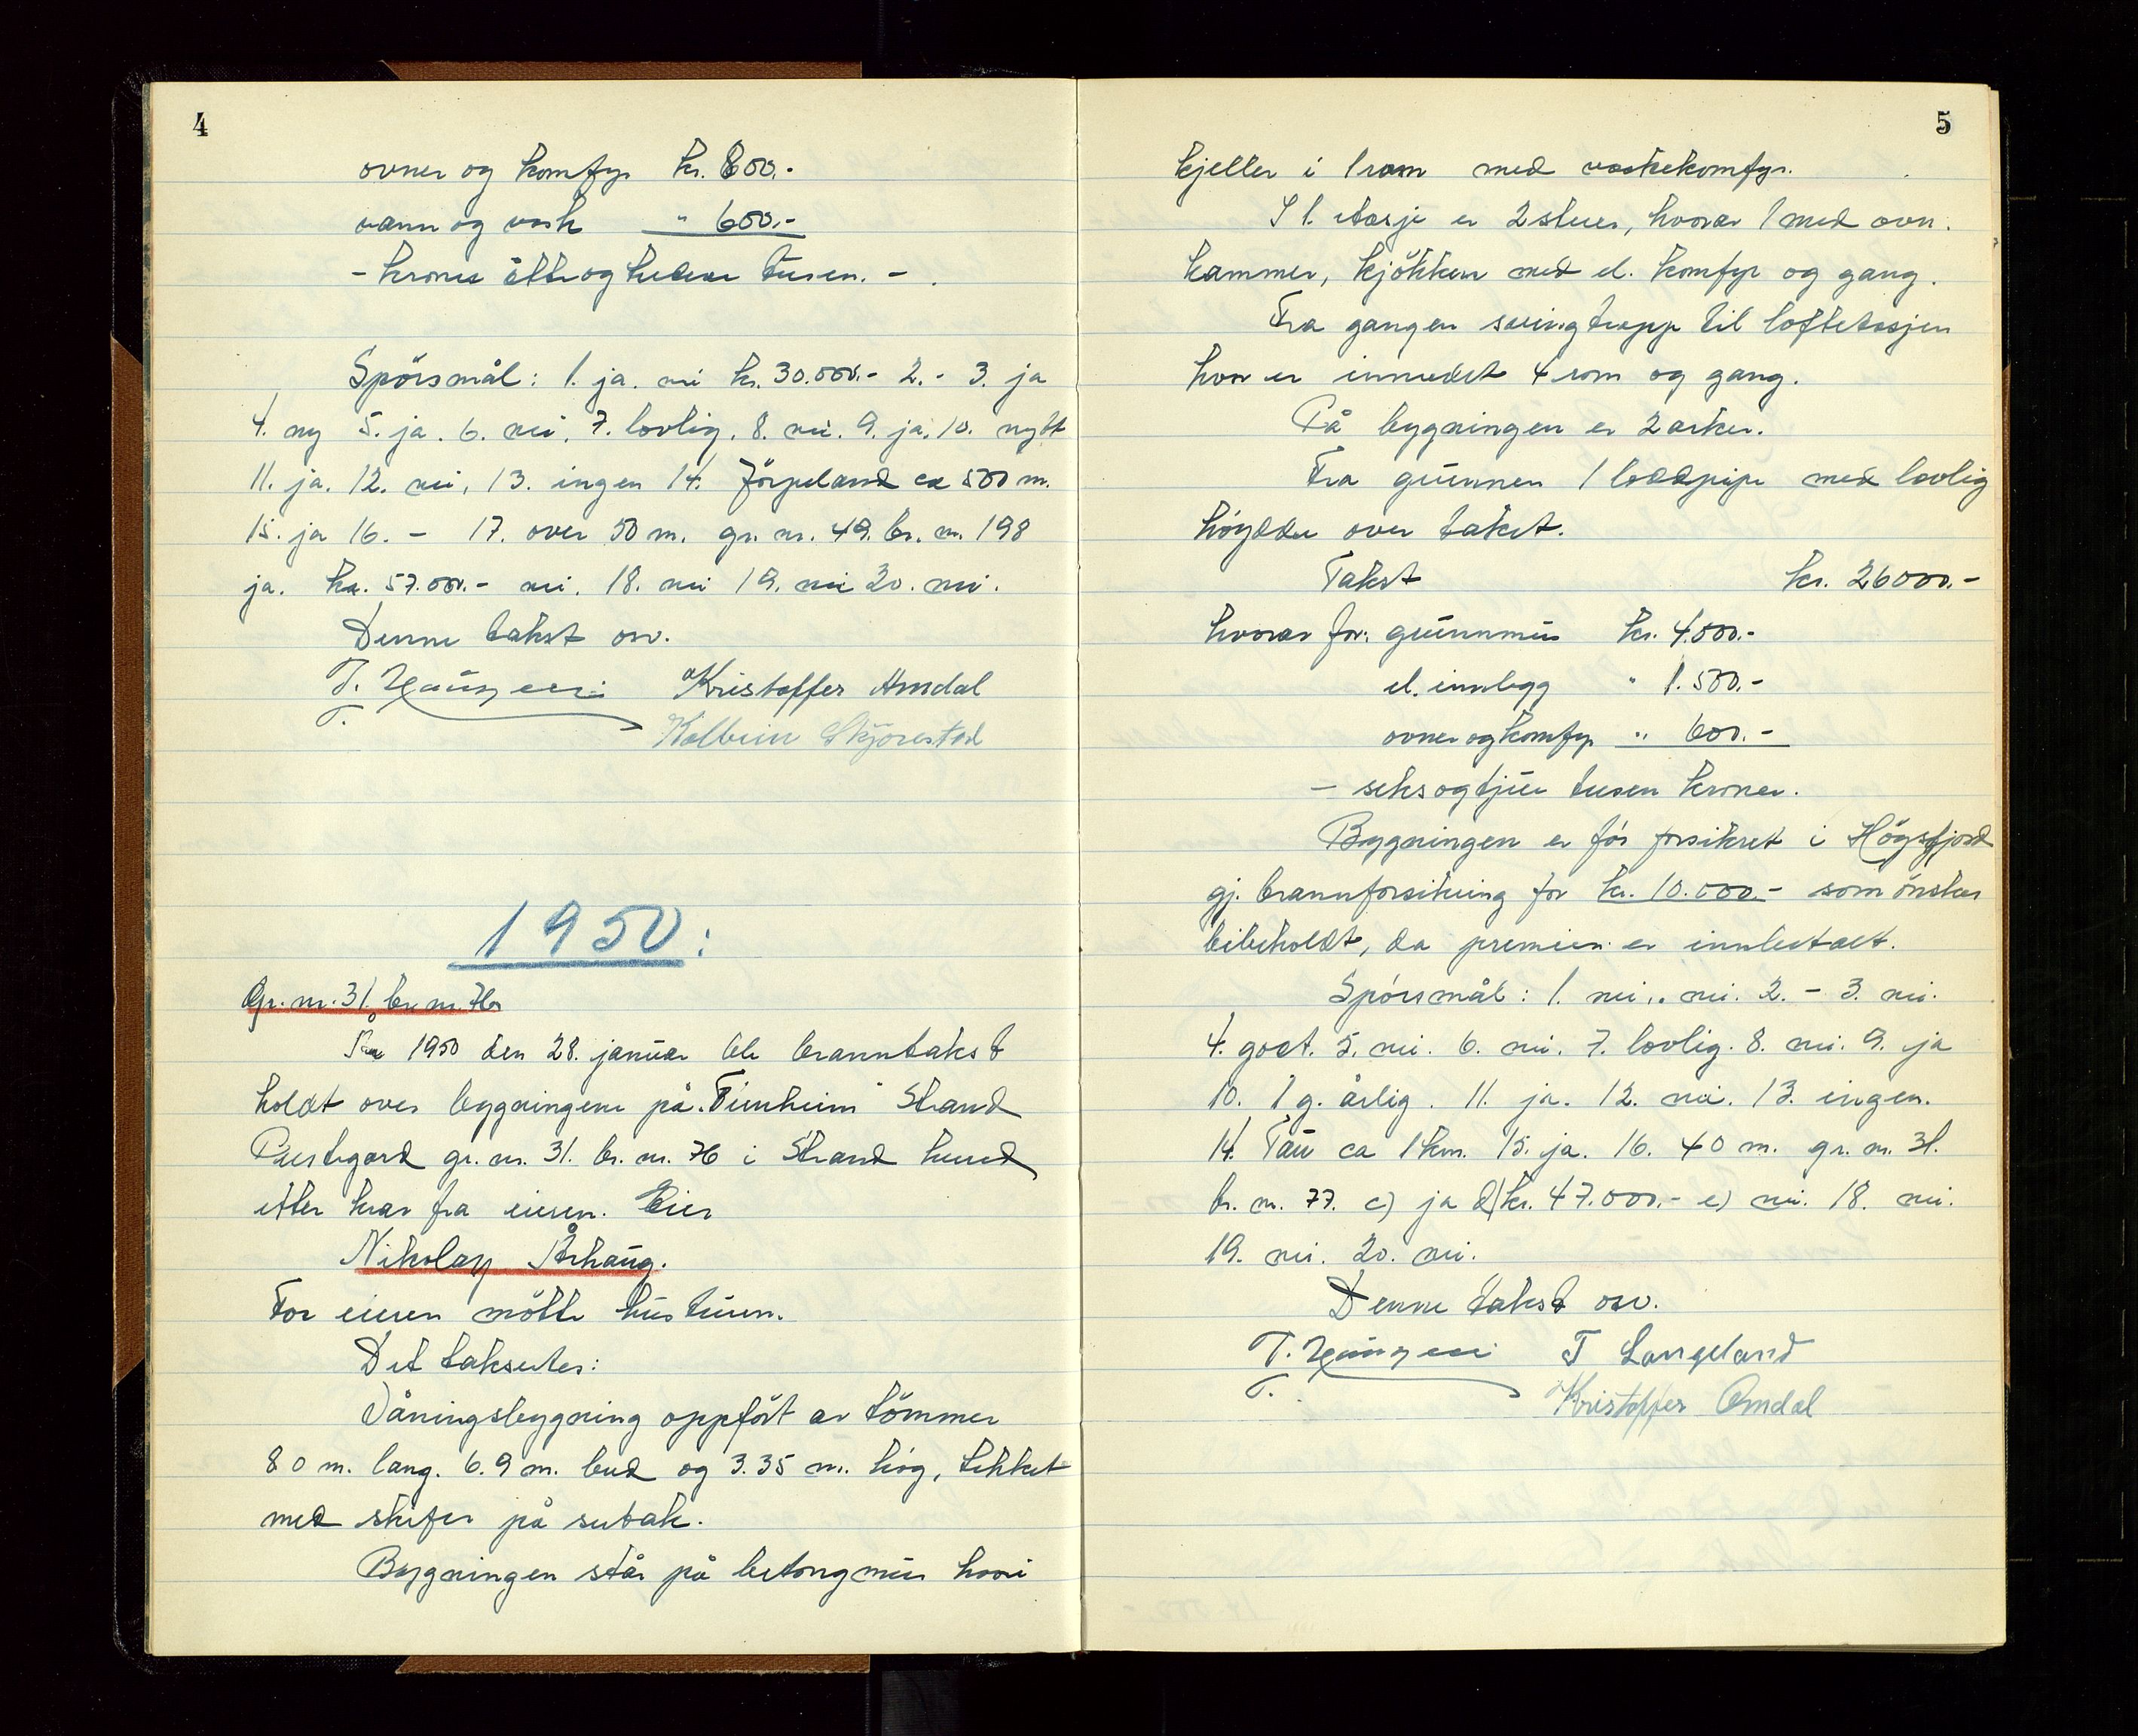 4
ovner og komfyr kr. 800.-
vann og vask " 600.-
- kroner åtteog tusen. -
Spörsmål: 1. ja. nei kr. 30.000.- 2. - 3. ja
4. ny 5. ja. 6. nei. 7. lovlig. 8. nei. 9. ja. 10. nytt
11. ja. 12. nei, 13. ingen 14. Jörpeland ca 500 m.
15. ja 16. - 17. over 50 m. gr. nr. 49. br. nr. 198
ja. kr. 57.000.- nei. 18. nei 19. nei 20. nei.
Denne takst osv.
T. Kristoffer Amdal
T. Kolbein Skjörestad
1950:
Gr. nr. 31. br. nr. 76
År 1950 den 28. januar ble branntakst
holdt over bygningene på "Tunheim" Strand
Prestegard gr. nr. 31. br. nr. 76 i Strand herred
etter krav fra eieren. Eier
Nikolay Århaug.
For eieren mötte hustruen.
Det takseres:
Våningsbygning oppfört av tömmer
8 0 m. lang. 6.9 m. bred og 3.35 m. hög, tekket
med skifer på sutak.
Bygningen står på betongmur hvori
5
kjeller i 1 rom med vaskekomfyr.
I 1. etasje er 2 stuer, hvorav 1 med ovn.
kammer, kjökken med el. komfyr og gang.
Fra gangen svingtrapp til loftetasjen
hvor er innredet 4 rom og gang.
På bygningen er 2 arker.
Fra grunnen 1 loddpipe med lovlig
höydde over taket.
Takst kr. 26000.-
hvorav for: grunnmur kr. 4.000.-
el. innlegg " 1.500.-
ovner og komfyr " 600.-
- seksogtjue tusen kroner.
Bygningen er för forsikret i Högsfjord
gj. brannforsikring for kr. 10.000.- som önskes
bibeholdt, da premien er innbetalt.
Spörsmål: 1. nei,. nei. 2. - 3. nei.
4. godt. 5. nei. 6. nei. 7. lovlig. 8. nei. 9. ja
10. 1 g. årlig. 11. ja. 12. nei. 13. ingen.
14. Tau ca 1 km. 15. ja. 16. 40 m. gr. nr. 31.
br. nr. 77. c) ja d) kr. 47.000.- e) nei. 18. nei.
19. nei. 20. nei.
Denne takst osv.
T. T Langeland
T. Kristoffer Omdal